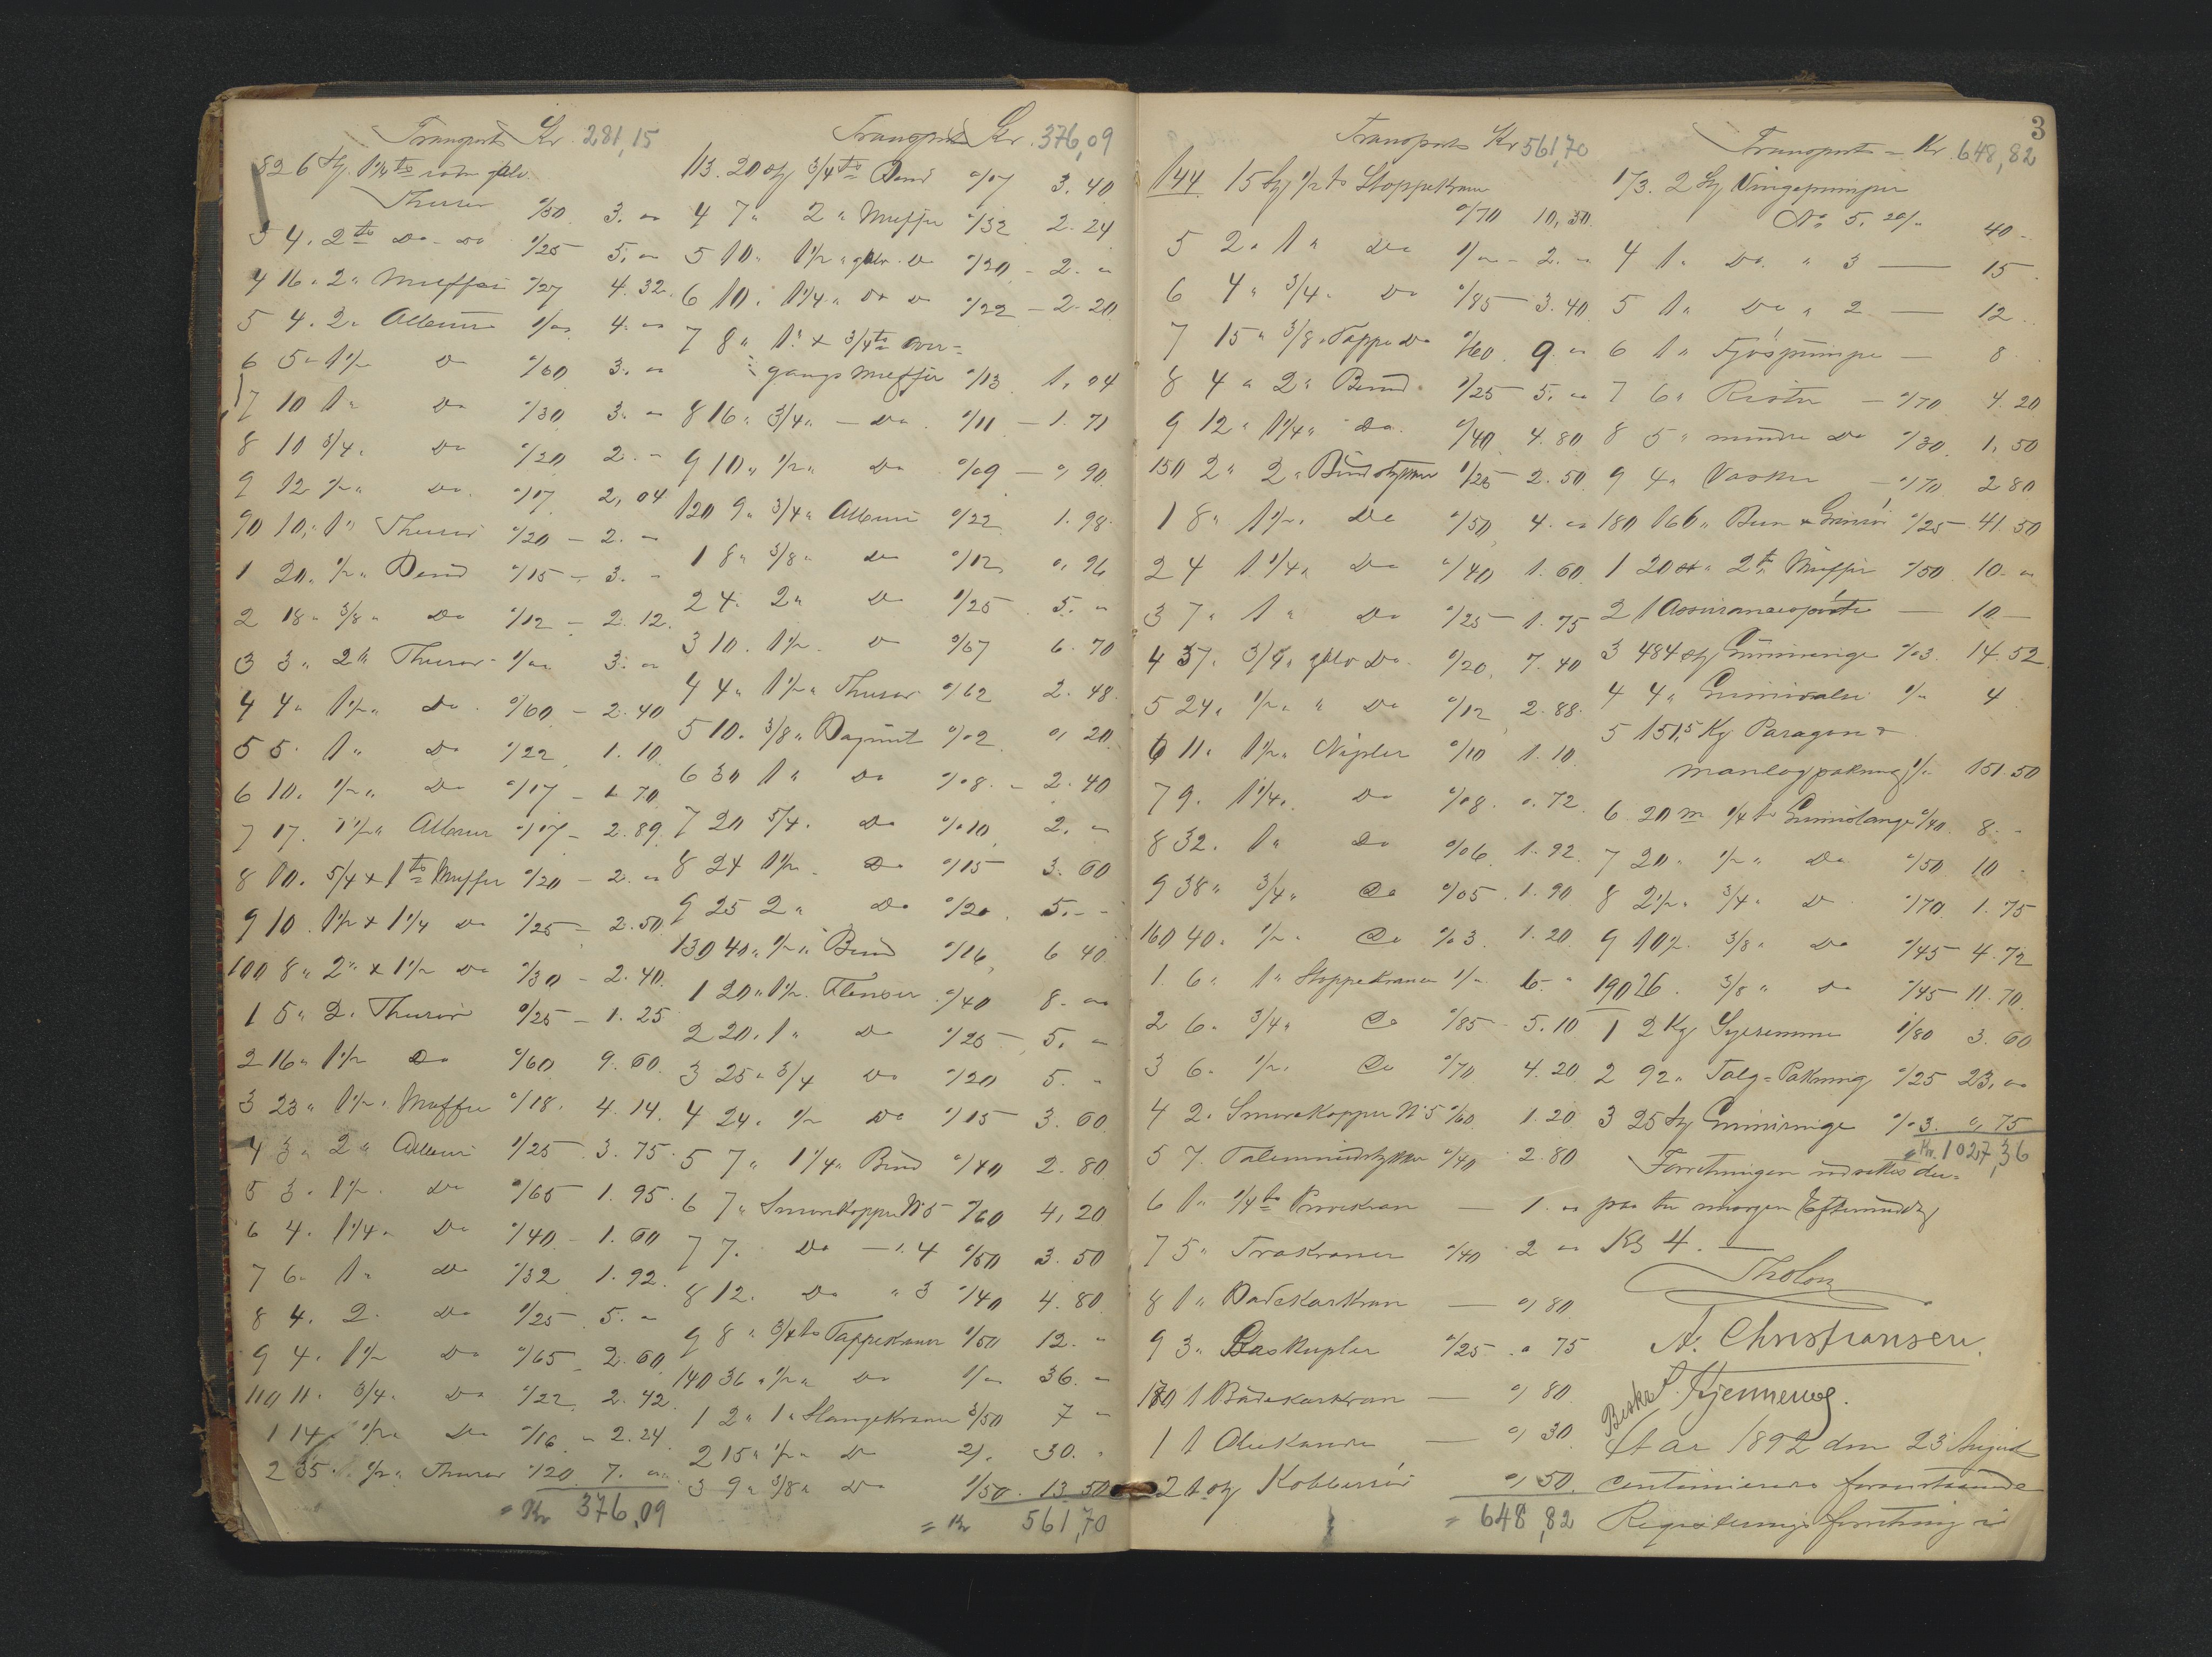 Transport Kr. 281,15
82 6 Stj. 1¼ to sorte galv.
Thurør %50 3. "
3 4. 2 to Do Do 1/25 5. "
4 16 " 2 " Muffer %27 4.32.
5 4. 2 " Albuer 1/" 4. "
6 5 " 1½ Do %60 3. "
7 10 1 " Do %30 3. "
8 10 ¾ " Do %20 2. "
9 12 ½ " Do %17 2,04
90 10 " 1 " Thurør %20 2. "
1 20 " ½ " Bend %15 3. "
2 18 " 3/8 " Do %12 2.12.
3 3 " 2 " Thurør 1/" 3. "
4 4 " 1½ " Do %60 2.40
5 5 " 1 " Do %22 1.10
6 10 " ½ " Do %17 1.70
7 17. ½ " Albuer %17 2.89
8 10. 5/4 x 1 to Muffer %20 2. "
9 10. 1½ x 1¼ Do %25 2.50
100 8 " 2 " x 1½ Do %30 2.40.
1 5 " 2. Thurør %25 1.25
2 16 " 1½ Do %60 9.60.
3 23 " 1½ " Muffer %18. 4.14.
4 3 " 2 " Albuer 1/25 3.75
5 3. 1½. Do %65 1.95.
6 4. 1¼ " Do %40 1.60
7 6 " 1 " Do %32 1.92.
8 4. 2. Do 1/25 5. "
9 4. 1½ Do %65 2.60
110 11. ¾ " Do %22 2.42.
1 14 " ½ " Do %16 2.24
2 35. ½ " Thurør %20 7. "
= Kr 376,09
Transport Kr. 376,09
113. 20 Stj ¾ to Bend %17 3.40
4 7 " 2 " Muffer %32 2.24
5 10 " 1½ " galv. Do %20 2. "
6 10. 1¼ " Do Do %22 2.20
7 8 " 1 " x ¾ to Over=
gangsmuffer %13 1.04
8 16 " ¾ " Do %11 1.71
9 10 " ½ " Do %09 0,90
120 9 " ¾ " Albuer %22 1.98
1 8 " 3/8 " Do %12 0,96
2 4. 2 " Do 1/25 5. "
3 10. 1½ Do %67 6.70
4 4 " 1½ " Thurør %62 2.48
5 10. 3/8 " %02 0,20
6 30 1 " Do %08. 2.40
7 20 5/4. Do %10 2. "
8 24 1½. Do %15 3.60
9 25 2 " Do %20. 5. "
130 40 " ½ " Bend %16 6 40
1 20 " 1½. Flenser %40 8. "
2 20. 1 " Do %25 5. "
3 25 " ¾ Do %20 5. "
4 24. ½ Do %15 3.60
5 7 " 1¼ " Bend %40 2.80
6 7 " Smørekopper N 5 %60 4,20
7 7. Do " 4 %50 3.50
8 12. Do " 3 %40 4.80
9 8 " ¾ to Tappekraner 1/50 12. "
140 36 " ½ " Do 1/" 36. "
1 2 " 1 " Slangekraner 3/50 7 "
2 15 " ½ " Do 2/. 30. "
3 9 " 3/8 " Do 1/50. 13 50
= Kr 561,70
3
Transport Kr 561,70
144 15 Stj ½ to Stoppekran
%70 10,50.
5 2. 1 " Do 1/" 2. "
6 4 " ¾ " Do %85 3.40
7 15 " 3/8 " Tappe Do %60 9. "
8 4 " 2 " Bend. 1/25 5. "
9 12 " 1¼ " Do. %40 4.80
150 2 " 2 " Bundstykker 1/25 2.50
1 8 " 1½. Do %50 4. "
2 4 1¼ " Do %40 1.60
3 7 " 1 " Do %25 1.75
4 37. ¾ " galv Do. %20 7.40
5 24 " ½ " " Do %12 2.88.
6 11. 1½ " Nipler %10 1.10
7 9. 1¼ " Do %08. 0.72.
8 32. 1 " Do %06 1.92.
9 38 " ¾ " Do %05 1.90
160 40. ½ " Do %03. 1.20
1. 6 " 1 " Stoppekraner 1/" 6. "
2 6. ¾ " Do %85 5.10
3 6. ½. Do %70 4.20
4 2. Smørekopper N 5 %60 1.20
5 7. %40 2.80
6 1 " ¼ to Prøvekran — 1. "
7 5 " Trækraner %40 2 "
8 1 " Badekarkran — 0,80
9 3. Gaskupler %25 " 75
170 1 Badekarkran — 0,80
1 1 Oliekande — 0,30
2 1 Stj Kobberrør 0,50.
= 648,82
Transport = Kr. 648,82
173. 2 Stj Vingepumper
No 5. 20/" 40 "
4 1. Do. " 3 — 15
5 1 " Do " 2 — 12
6 1 " Fjøspumpe — 8
7 6 " Rister %70 4.20
8 5 " mindre Do %30 1,50
9 4. Vasker %70 2 80
180 166 " Bun & Grenrør %25 41.50
1 20 " 2 to Muffer %50 10. "
2 1 — 10 —
3 484 Stj Gummiringe %03. 14.52
4 4 " 1/" 4
5 151,5 Kg Paragon &
manlogpakning 1/" 151.50
6. 20 m ¼ to Gummislange %40 8. "
7 20 " ½ " Do %50 10
8 2½ " ¾ " Do %70 1.75
9 10½. 3/8 " Do %45 4.72
190 26. 3/8 " Do %45 11.70
1 2 Kg Syeremme 1/80 3.60
2 92 " Talg=Pakning %25 23. "
3 25 Stj Gummiringe %03. 0,75
= Kr. 1027,36
Forretningen udsattes der=
paa til imorgen Eftermiddag
Kl 4. —
Tholon
A. Christiansen.
Beskt. Kjennerud.
At ar 1892 den 23 August
continueredes foranstaaende
Registreringsforretning i